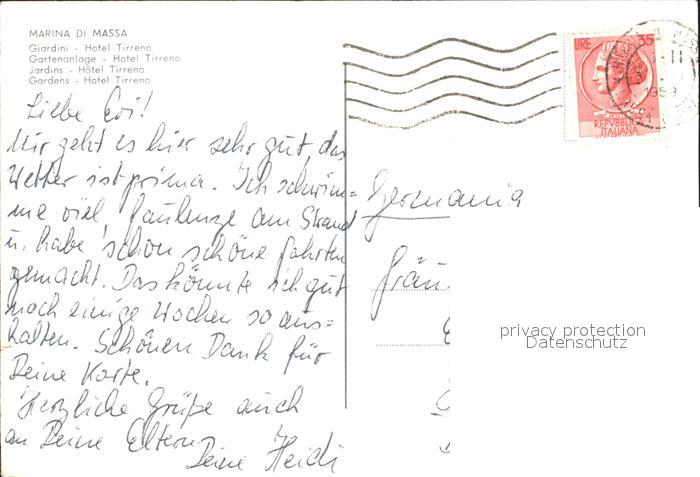 MARINA DI MASSA
Giardini - Hotel Tirreno
Gartenanlage - Hotel Tirreno
Jardins - Hôtel Tirreno
Gardens - Hotel Tirreno
Liebe Evi!
Mir geht es hier sehr gut, das
Wetter ist prima. Ich schwim=
me viel, faulenze am Strand
u. habe schon schöne Fahrten
gemacht. Das könnte ich gut
noch einige Wochen so aus=
halten. Schönen Dank für
Deine Karte.
Herzliche Grüße auch
an Deine Eltern
Deine Heidi
LIRE 35
POSTE
REPVBBLICA
ITALIANA
1959
Germania
Fräu
privacy protection
Datenschutz